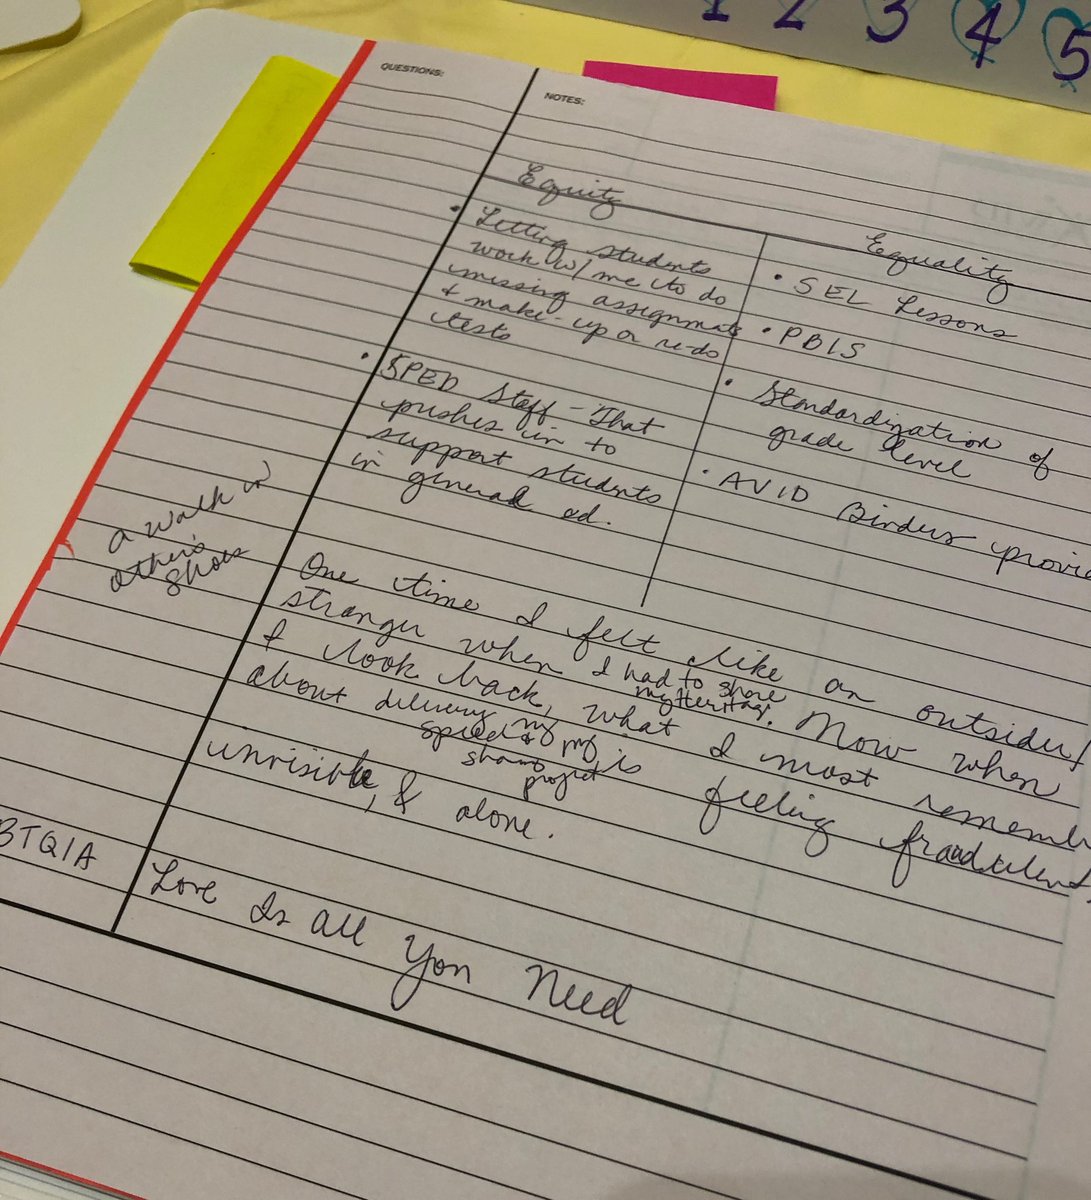 1 2 3 4 5
QUESTIONS:
NOTES:
Equity
• Letting students
work w/me to do
missing assignmnts
& make-up or re-do
tests
• SPED Staff - That
pushes in to
support students
in general ed.
Equality
• SEL Lessons
• PBIS
• Standardization of
grade level
• AVID Binders provi
a walk in
other's
shoes
One time I felt like an outsider/
stranger when I had to share
my Heritage. Now when
I look back, what I most rememb
about delivering my
speech & my is feeling fraudulent
sharing
project
unvisible, & alone.
BTQIA
Love Is all You Need